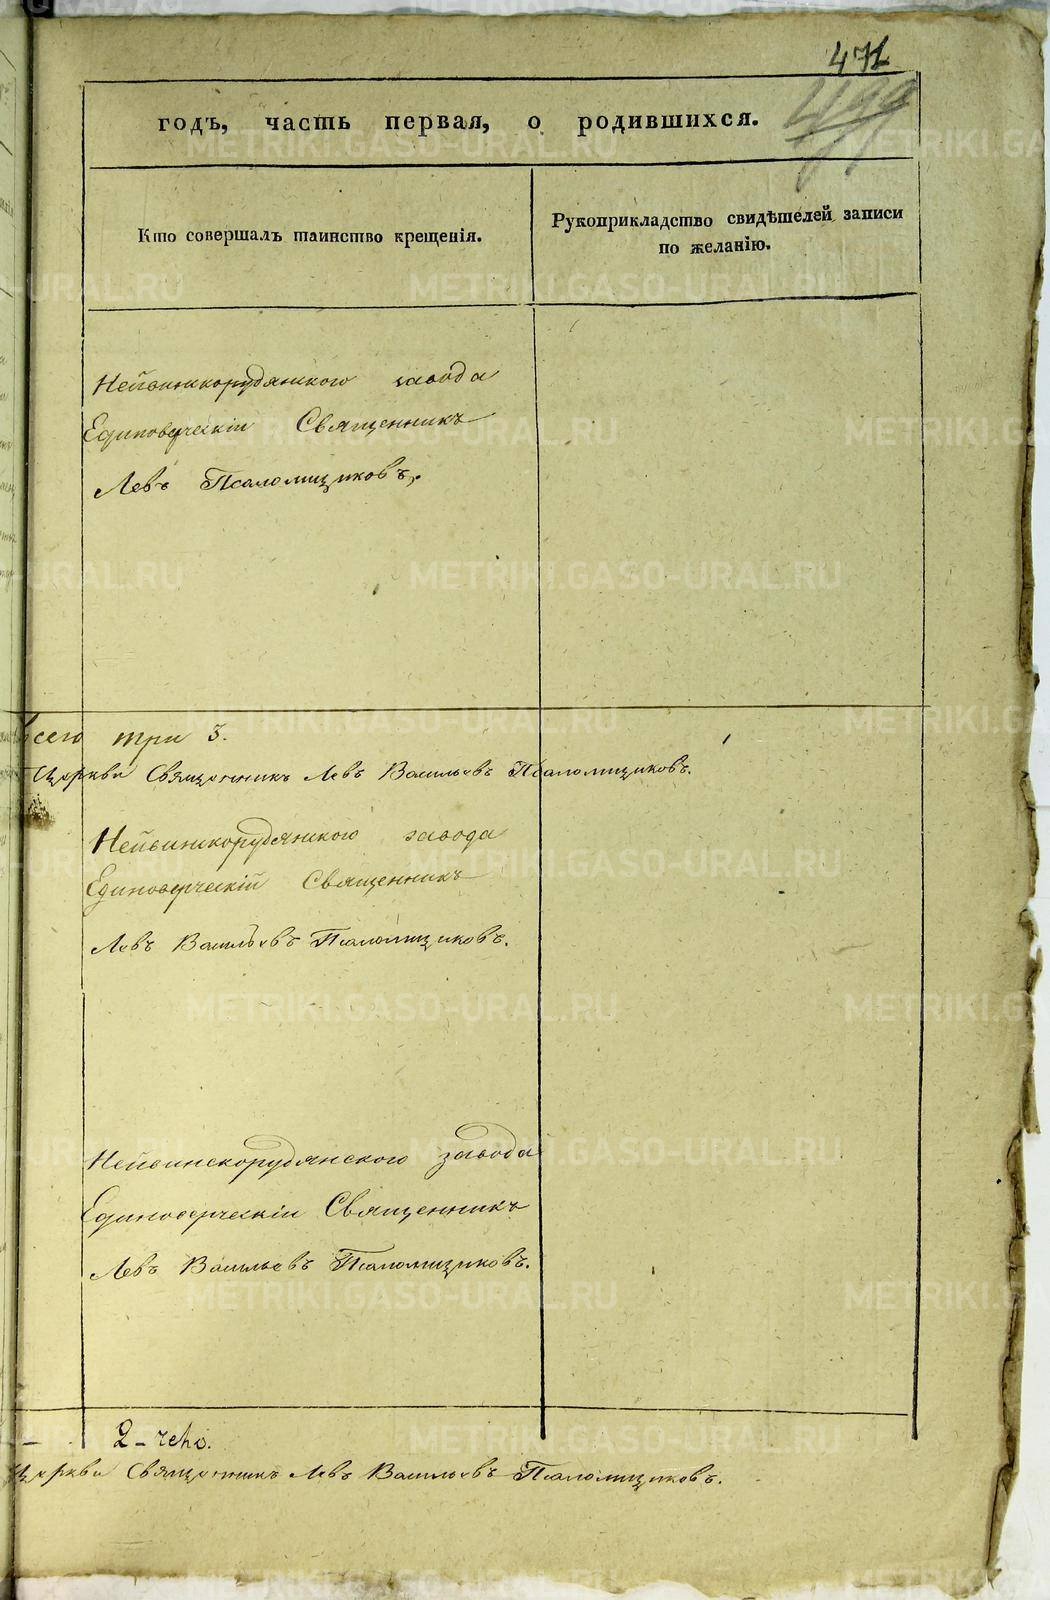 471
499
годъ, часть первая, о родившихся.
Кто совершалъ таинство крещенія.
Рукоприкладство свидѣтелей записи
по желанію.
Нейвинскорудянскаго завода
Единоверческій Священникъ
Левъ Псаломщиковъ,
всего три 3.
Церкви Священникъ Левъ Васильевъ Псаломщиковъ.
Нейвинскорудянского завода
Единоверческій Священникъ
Левъ Васильевъ Псаломщиковъ.
Нейвинскорудянского завода
Единоверческій Священникъ
Левъ Васильевъ Псаломщиковъ.
2 - чело.
Церкви Священникъ Левъ Васильевъ Псаломщиковъ.
METRIKI.GASO-URAL.RU